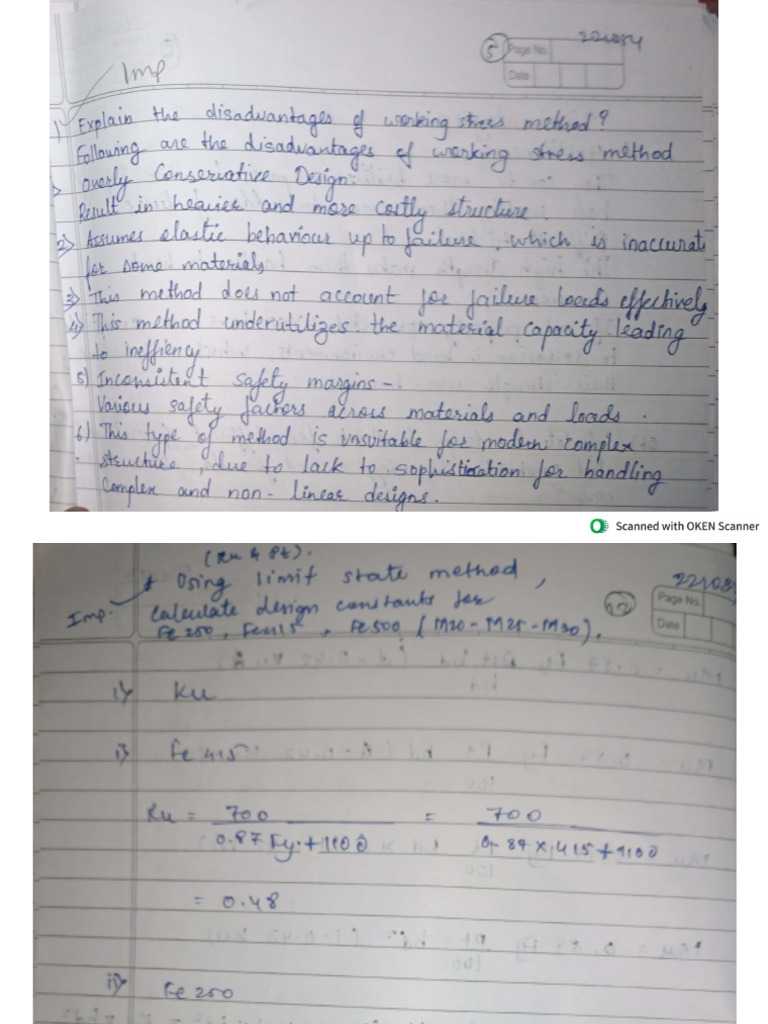 5 Page No. 221054
Date
Imp
1) Explain the disadvantages of working stress method?
Following are the disadvantages of working stress method
Overly Conservative Design:
Result in heavier and more costly structure.
2) Assumes elastic behaviour up to failure, which is inaccurate
for some materials
3) This method does not account for failure loads effectively
4) This method underutilizes the material capacity, leading
to ineffiency
5) Inconsistent safety margins -
Various safety factors across materials and loads.
6) This type of method is unsuitable for modern complex
structure, due to lack to sophistication for handling
complex and non-linear designs.
Scanned with OKEN Scanner
(Ku & Pt).
Imp. Using limit state method,
calculate design constants for
Fe 250, Fe415, Fe 500 (M20 - M25 - M30).
Page No.
Date
1) Ku
i) Fe 415
Ku = 700 / 0.87 Fy + 1100 = 700 / 0.87 x 415 + 1100
= 0.48
ii) Fe 250